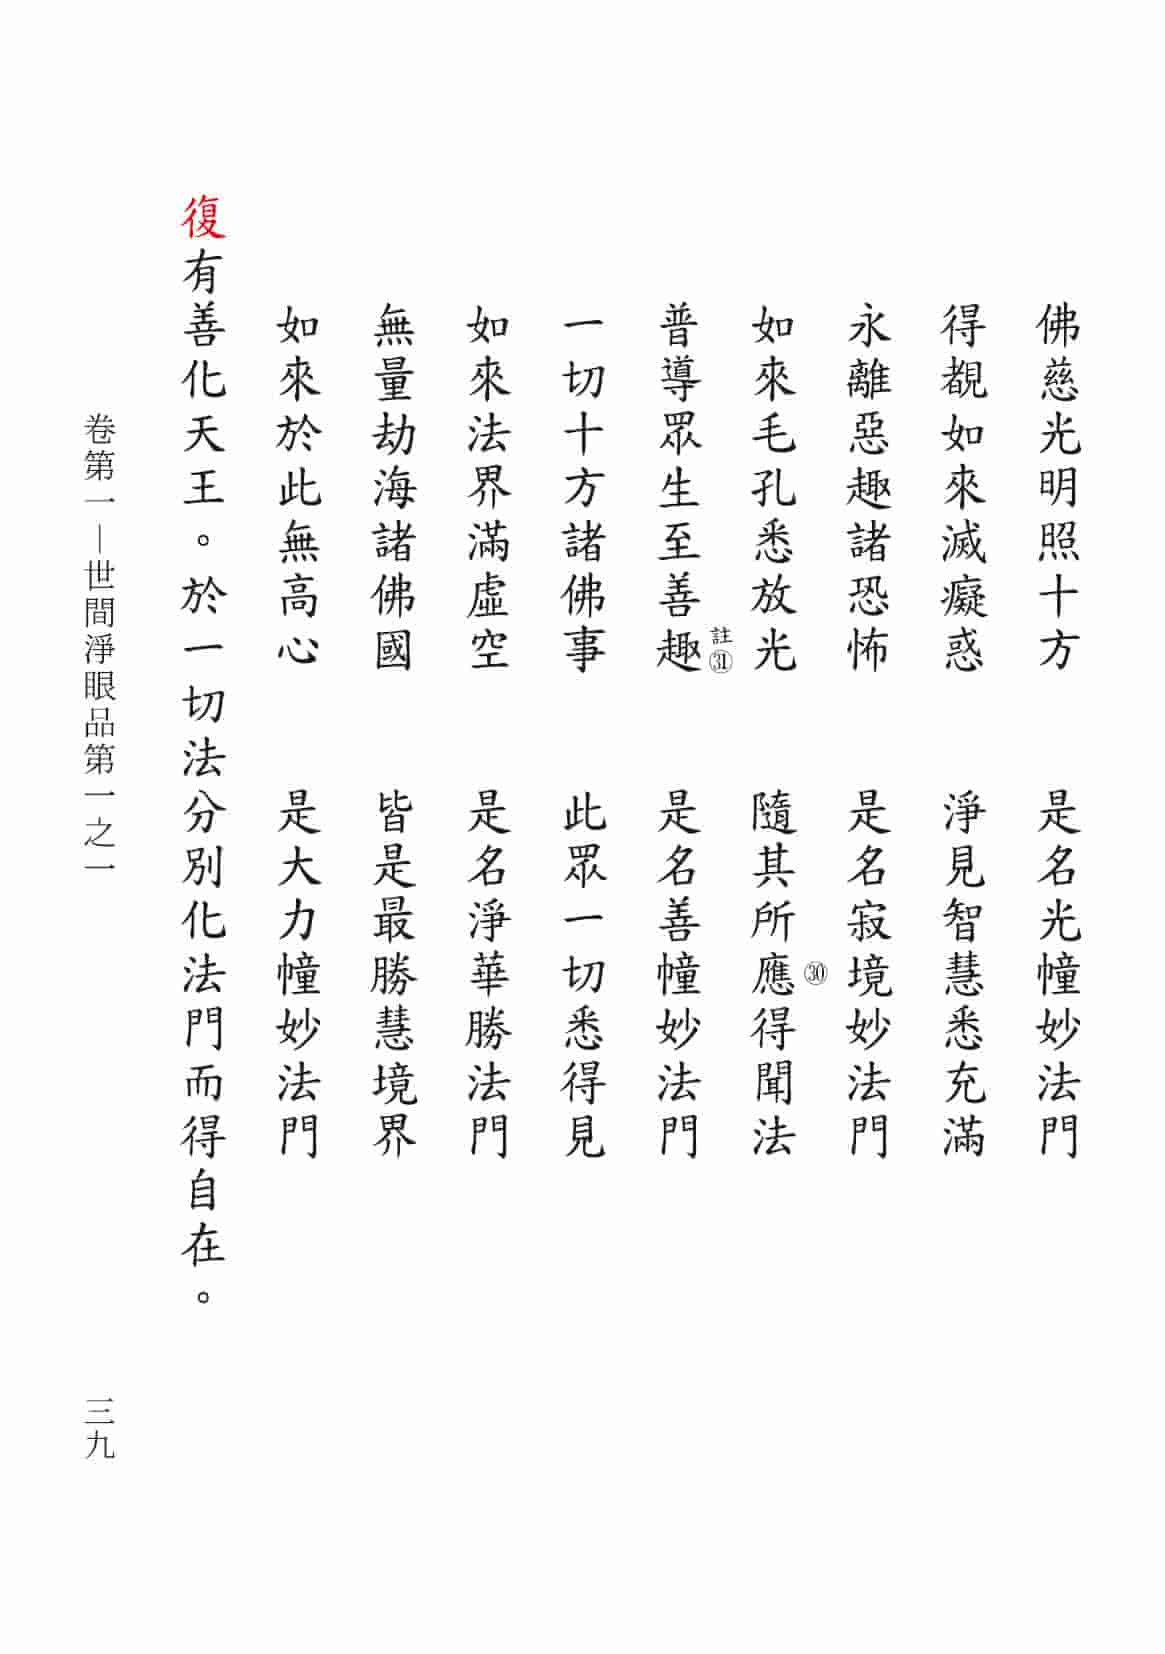 佛慈光明照十方　是名光幢妙法門
得覩如來滅癡惑　淨見智慧悉充滿
永離惡趣諸恐怖　是名寂境妙法門
如來毛孔悉放光　隨其所應㉚得聞法
普導眾生至善趣註㉛　是名善幢妙法門
一切十方諸佛事　此眾一切悉得見
如來法界滿虛空　是名淨華勝法門
無量劫海諸佛國　皆是最勝慧境界
如來於此無高心　是大力幢妙法門
復有善化天王。於一切法分別化法門而得自在。
卷第一—世間淨眼品第一之一
三九